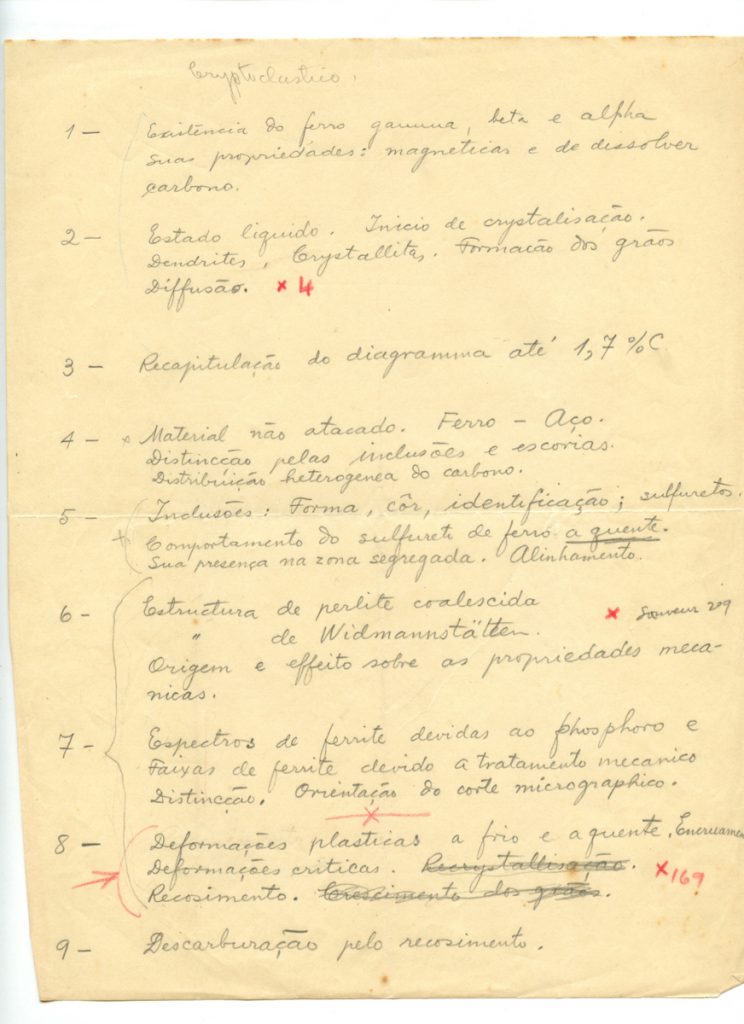 Cryptoclastico.
1 - Existência do ferro gamma, beta e alpha
suas propriedades: magneticas e de dissolver
carbono.
2 - Estado liquido. Inicio de crystalisação.
Dendrites, Crystallites. Formação dos grãos
Diffusão. x 4
3 - Recapitulação do diagramma até 1,7 % C
4 - x Material não atacado. Ferro - Aço.
Distincção pelas inclusões e escorias.
Distribuição heterogenea do carbono.
5 - Inclusões: Forma, côr, identificação; sulfuretos.
+ Comportamento do sulfureto de ferro a quente.
Sua presença na zona segregada. Alinhamento.
6 - Estructura de perlite coalescida x Sauveur 209
" de Widmannstätten.
Origem e effeito sobre as propriedades meca-
nicas.
7 - Espectros de ferrite devidas ao phosphoro e
Faixas de ferrite devido a tratamento mecanico
Distincção. Orientação do corte micrographico.
x
8 - Deformações plasticas a frio e a quente. Encruamen
Deformações criticas. Recrystallisação. x 169
Recosimento. Crescimento dos grãos.
9 - Descarburação pelo recosimento.